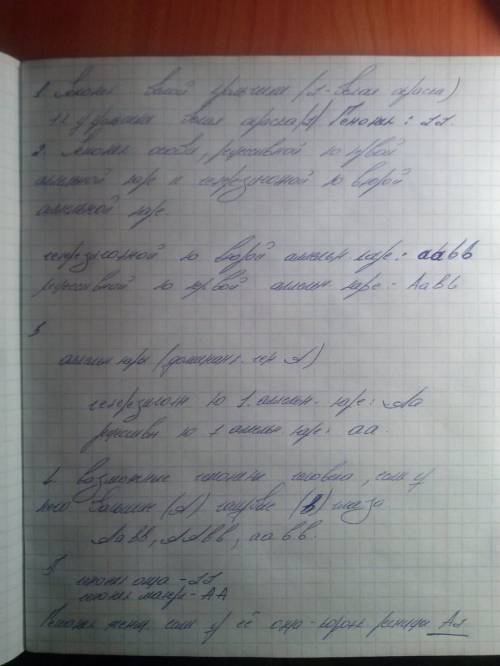 1. Генотип белой крольчихи (1-белая окраска)
11 у крольчихи белая окраска Генотип: 11.
2. Генотип особи, рецессивной по первой
аллельной паре и гетерозиготной по второй
аллельной паре.
гетерозиготной по второй аллельн. паре: aabb
рецессивной по первой аллельн паре - AaBb
3
аллельн пары (доминант. ген A)
гетерозиготн по 1 аллельн. паре: Aa
рецессивн по 1 аллельн паре: aa.
возможные генотипы человека, если у
него большие (A) голубые (b) глаза
AaBb, AABb, aabb.
5
генотип отца - 11
генотип матери - AA
Генотип жены если у её отца - корот. ресницы A1